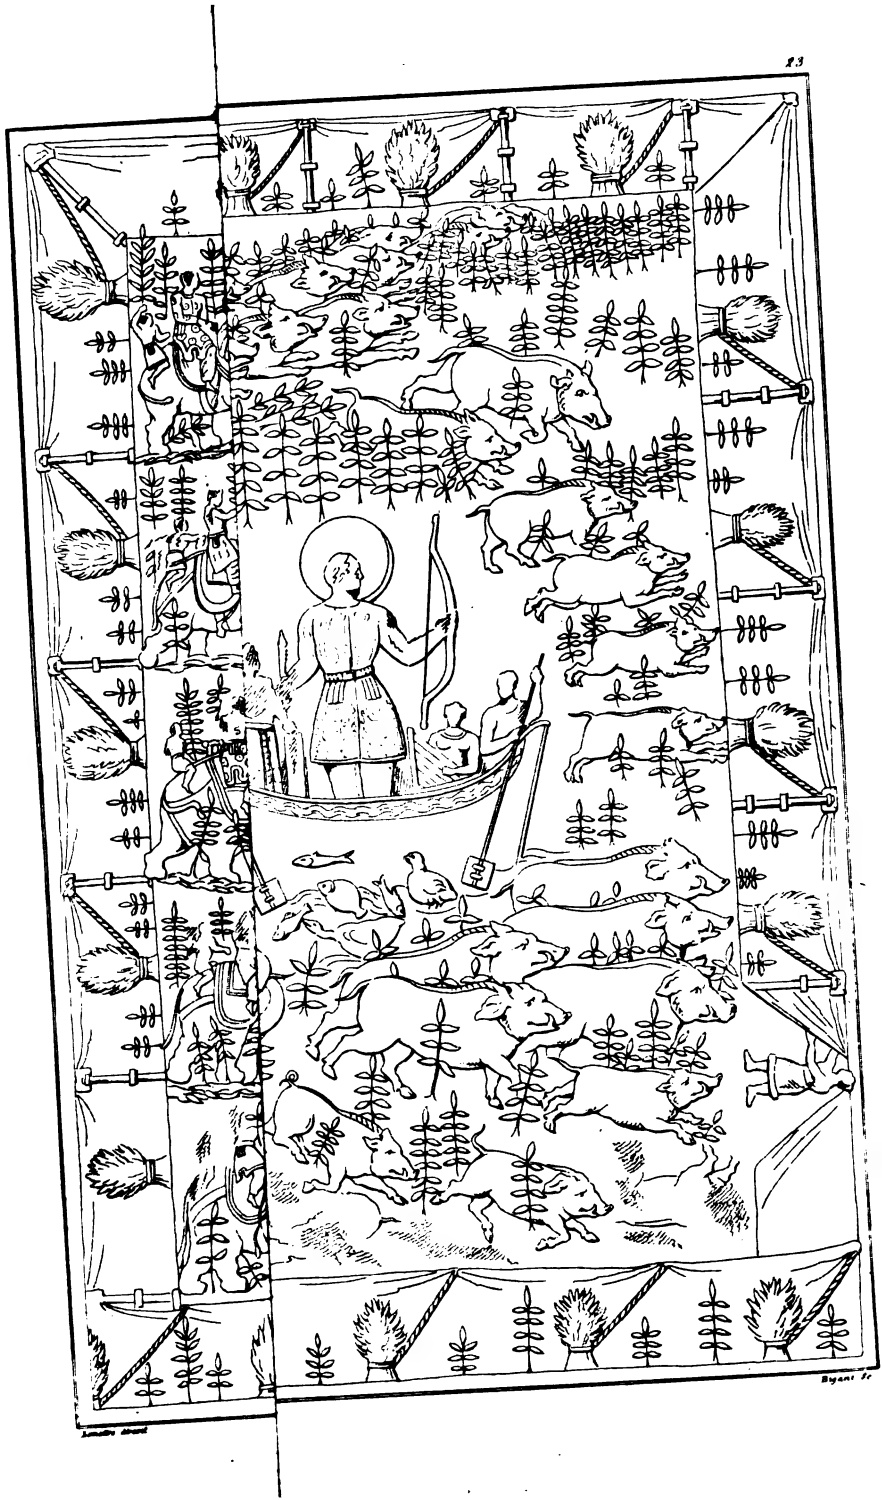 23
Lemaitre direxit
Bigant Sc